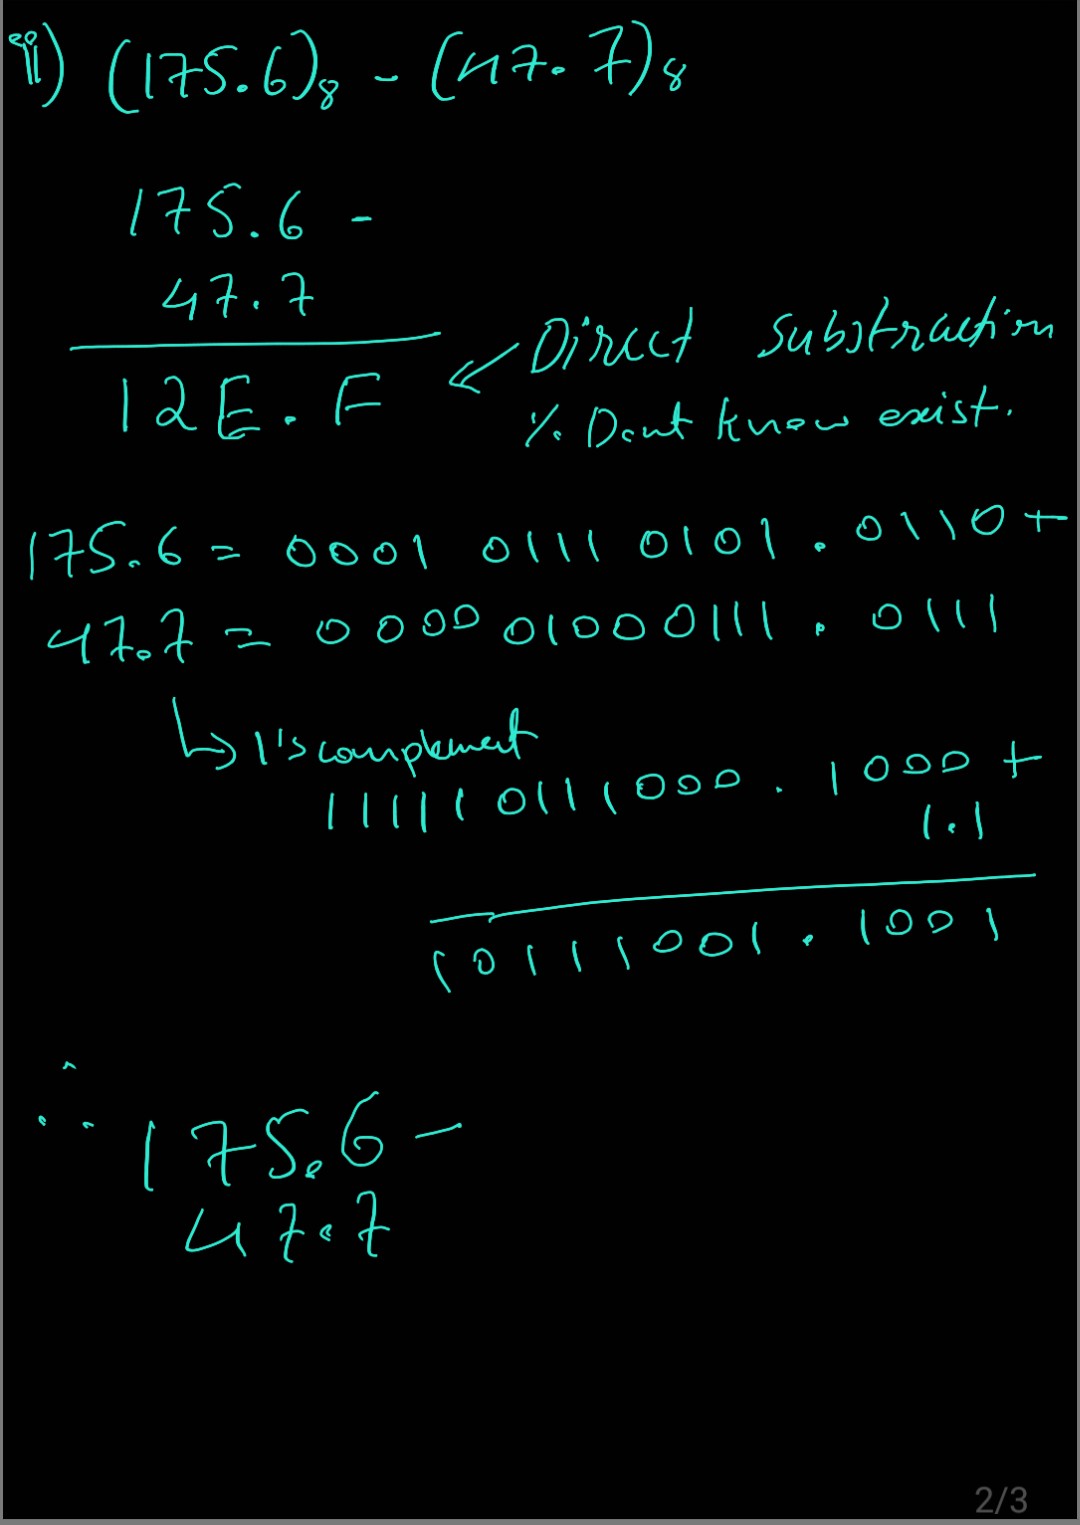 iii) (175.6)₈ - (47.7)₈
175.6 -
47.7
12E.F ← Direct substraction
% Dont know exist.
175.6 = 0001 0111 0101 . 0110 +
47.7 = 0000 01000111 . 0111
↳ 1's complement
111110111000 . 1000 +
1.1
10111001 . 1001
∴ 175.6 -
47.7
2/3